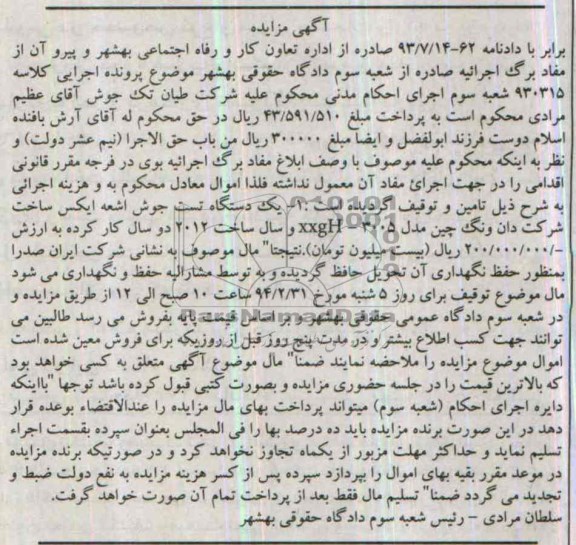 آگهی مزایده
برابر با دادنامه ۶۲-۹۳/۷/۱۴ صادره از اداره تعاون کار و رفاه اجتماعی بهشهر و پیرو آن از
مفاد برگ اجرائیه صادره از شعبه سوم دادگاه حقوقی بهشهر موضوع پرونده اجرایی کلاسه
۹۳۰۳۱۵ شعبه سوم اجرای احکام مدنی محکوم علیه شرکت طیان تک جوش آقای عظیم
مرادی محکوم است به پرداخت مبلغ ۴۳/۵۹۱/۵۱۰ ریال در حق محکوم له آقای آرش بافنده
اسلام دوست فرزند ابولفضل و ایضا مبلغ ۳۰۰۰۰۰ ریال من باب حق الاجرا (نیم عشر دولت) و
نظر به اینکه محکوم علیه موصوف با وصف ابلاغ مفاد برگ اجرائیه بوی در فرجه مقرر قانونی
اقدامی را در جهت اجرائ مفاد آن معمول نداشته فلذا اموال معادل محکوم به و هزینه اجرائی
به شرح ذیل تامین و توقیف گردیده است ۱. یک دستگاه تست جوش اشعه ایکس ساخت
شرکت دان ونگ چین مدل ۲۰۰۵ - xxgH و سال ساخت ۲۰۱۲ دو سال کار کرده به ارزش
-/۲۰۰/۰۰۰/۰۰۰ ریال (بیست میلیون تومان).نتیجتا" مال موصوف به نشانی شرکت ایران صدرا
بمنظور حفظ نگهداری آن تحویل حافظ گردیده و به توسط مشارالیه حفظ و نگهداری می شود
مال موضوع توقیف برای روز ۵ شنبه مورخ ۹۴/۲/۳۱ ساعت ۱۰ صبح الی ۱۲ از طریق مزایده و
در شعبه سوم دادگاه عمومی حقوقی بهشهر و براساس قیمت پایه بفروش می رسد طالبین می
توانند جهت کسب اطلاع بیشتر و در مدت پنج روز قبل از روزیکه برای فروش معین شده است
اموال موضوع مزایده را ملاحضه نمایند ضمنا" مال موضوع آگهی متعلق به کسی خواهد بود
که بالاترین قیمت را در جلسه حضوری مزایده و بصورت کتبی قبول کرده باشد توجها "بااینکه
دایره اجرای احکام (شعبه سوم) میتواند پرداخت بهای مال مزایده را عندالاقتضاء بوعده قرار
دهد در این صورت برنده مزایده باید ده درصد بها را فی المجلس بعنوان سپرده بقسمت اجراء
تسلیم نماید و حداکثر مهلت مزبور از یکماه تجاوز نخواهد کرد و در صورتیکه برنده مزایده
در موعد مقرر بقیه بهای اموال را بپردازد سپرده پس از کسر هزینه مزایده به نفع دولت ضبط و
تجدید می گردد ضمنا" تسلیم مال فقط بعد از پرداخت تمام آن صورت خواهد گرفت.
سلطان مرادی - رئیس شعبه سوم دادگاه حقوقی بهشهر